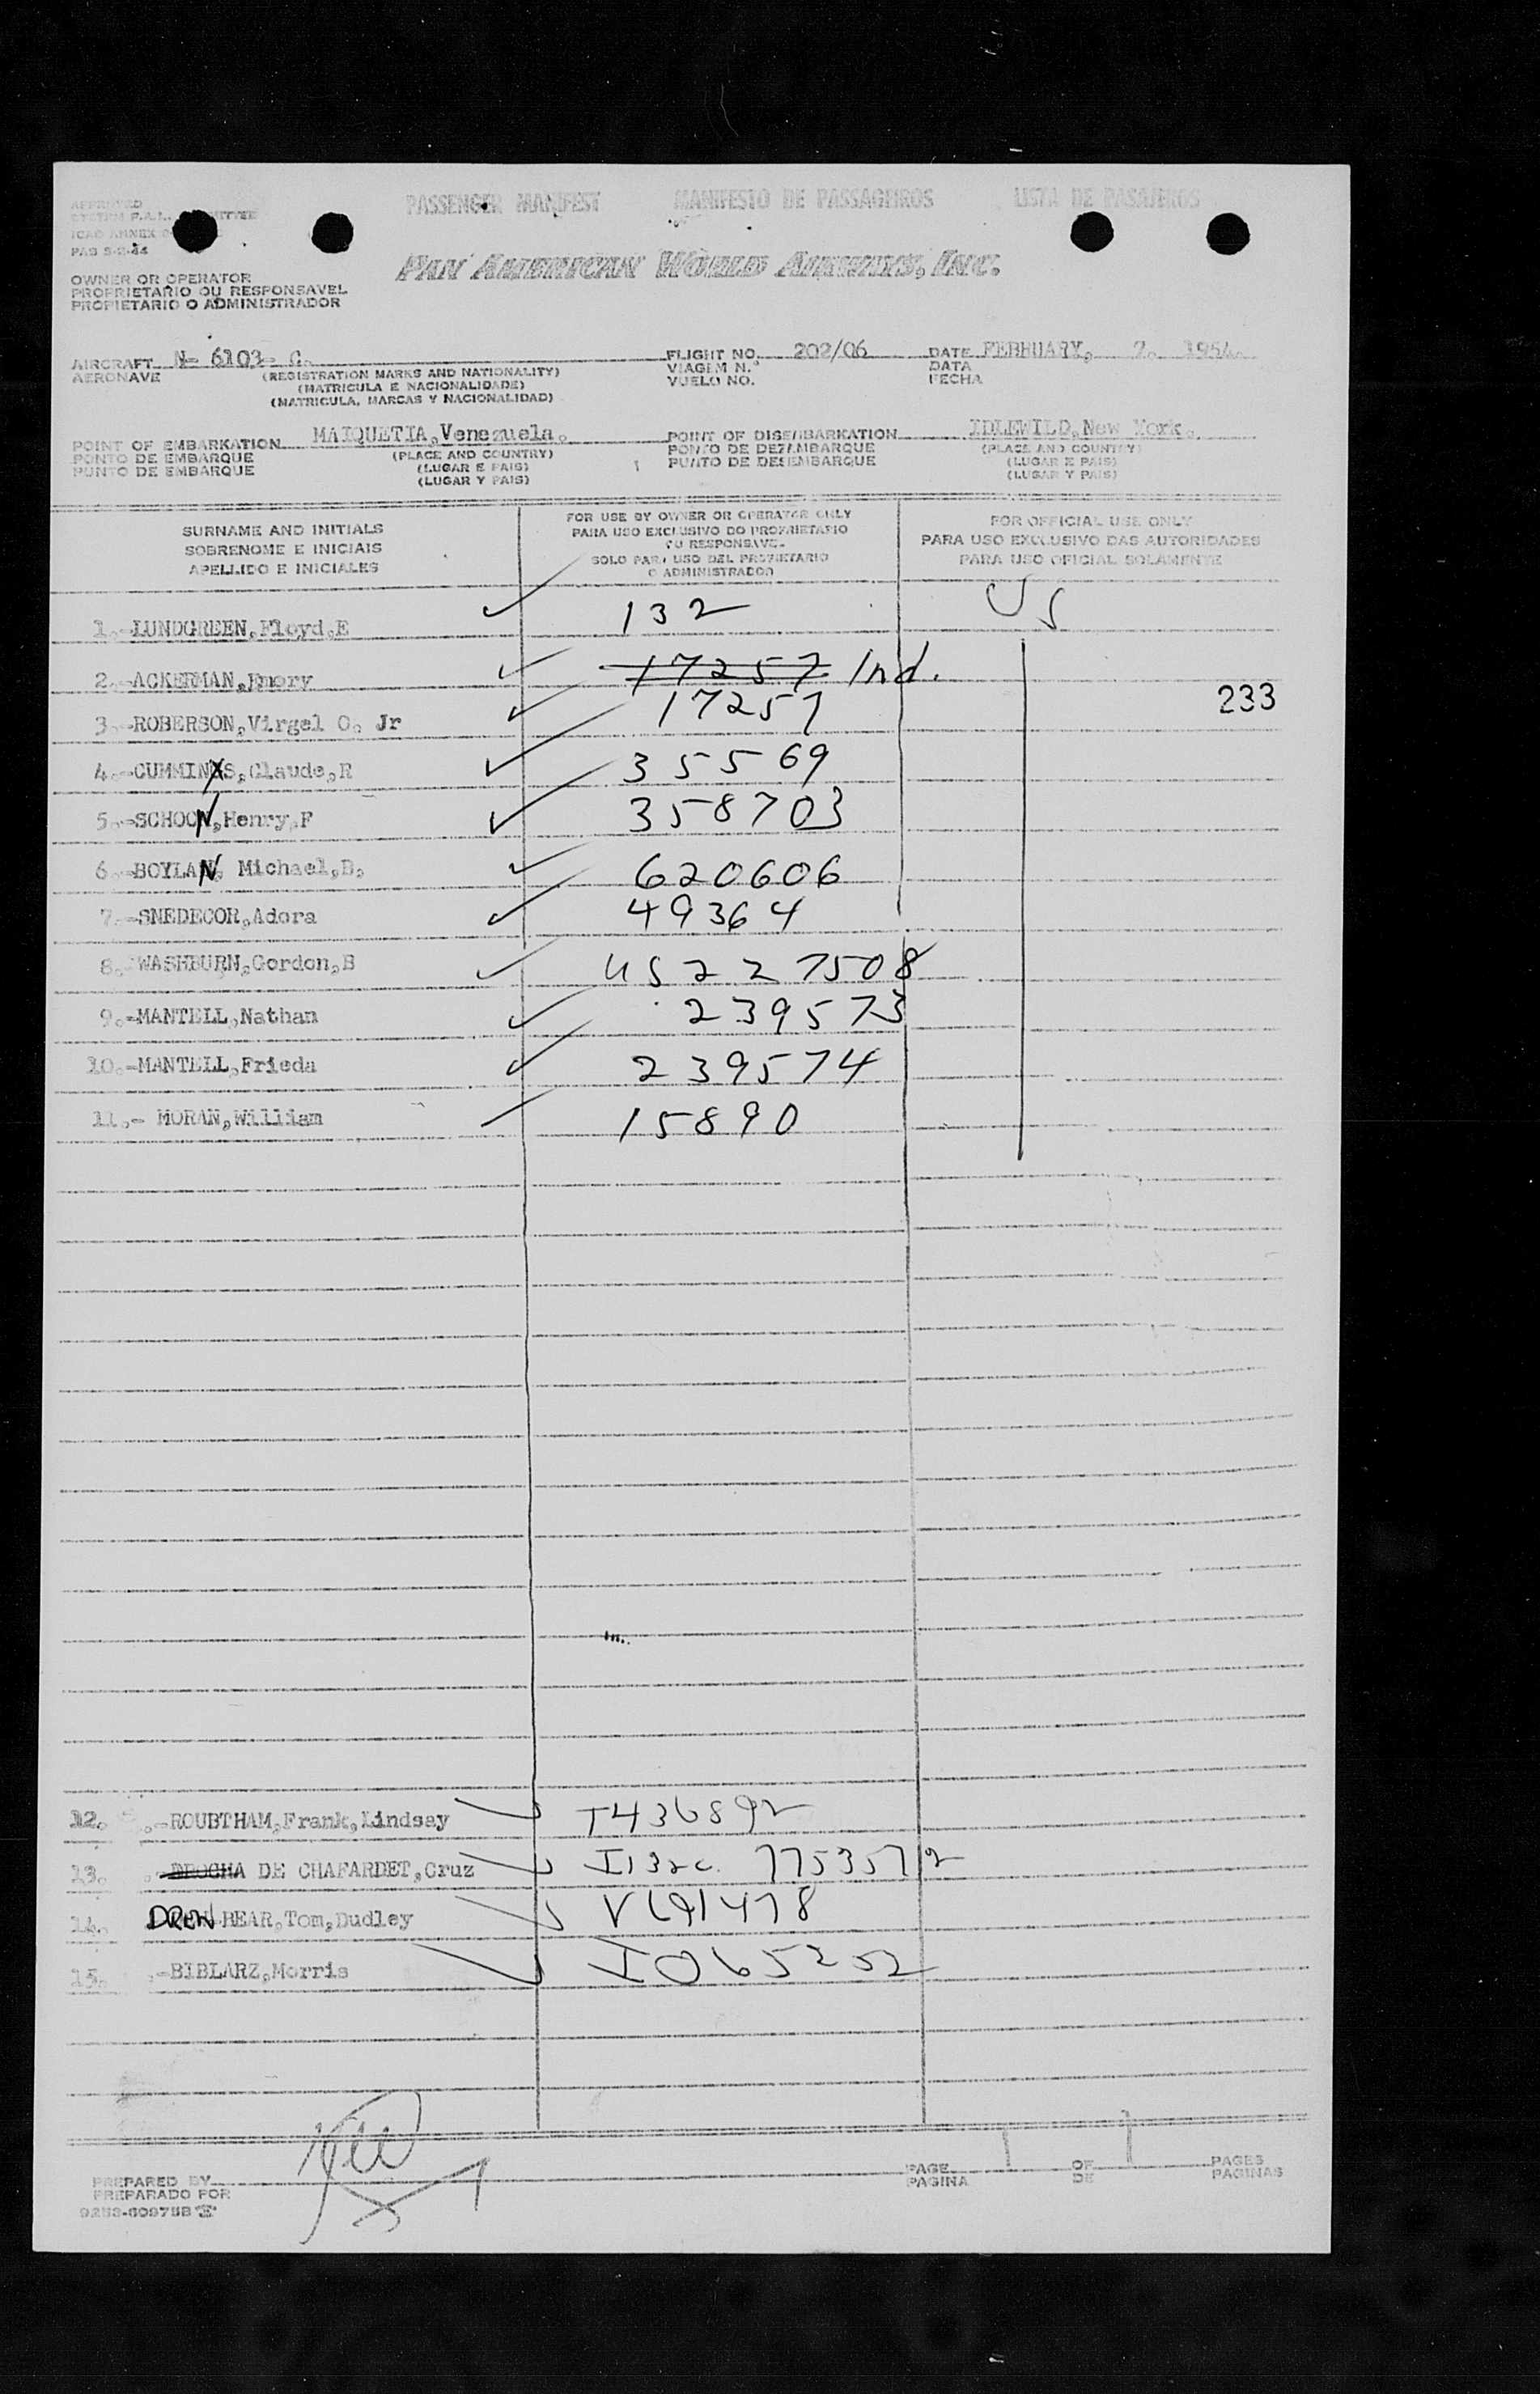 PASSENGER MANIFEST MANIFESTO DE PASSAGEIROS LISTA DE PASAJEROS
APPROVED
ICAO ANNEX
PAS 5-2-44
PAN AMERICAN WORLD AIRWAYS, INC.
OWNER OR OPERATOR
PROPRIETARIO OU RESPONSAVEL
PROPIETARIO O ADMINISTRADOR
AIRCRAFT N- 6103- C. FLIGHT NO. 202/06 DATE FEBRUARY, 7. 1954.
AERONAVE (REGISTRATION MARKS AND NATIONALITY) VIAGEM N.° DATA
(MATRICULA E NACIONALIDADE) VUELO NO. FECHA
(MATRICULA, MARCAS Y NACIONALIDAD)
POINT OF EMBARKATION MAIQUETIA,Venezuela. POINT OF DISEMBARKATION IDLEWILD,New York.
PONTO DE EMBARQUE (PLACE AND COUNTRY) PONTO DE DEZEMBARQUE (PLACE AND COUNTRY)
PUNTO DE EMBARQUE (LUGAR E PAIS) PUNTO DE DESEMBARQUE (LUGAR E PAIS)
(LUGAR Y PAIS) (LUGAR Y PAIS)
SURNAME AND INITIALS
SOBRENOME E INICIAIS
APELLIDO E INICIALES
FOR USE BY OWNER OR OPERATOR ONLY
PARA USO EXCLUSIVO DO PROPRIETARIO
OU RESPONSAVEL
SOLO PARA USO DEL PROPIETARIO
O ADMINISTRADOR
FOR OFFICIAL USE ONLY
PARA USO EXCLUSIVO DAS AUTORIDADES
PARA USO OFICIAL SOLAMENTE
1.-LUNDGREEN,Floyd,E 132 US
2.-ACKERMAN,Emory 17257 Ind.
3.-ROBERSON,Virgel O. Jr 17257 233
4.-CUMMINGS,Claude,R 35569
5.-SCHOON,Henry,F 358703
6.-BOYLAN, Michael,B. 620606
7.-SNEDECOR,Adora 49364
8.-WASHBURN,Gordon,B US 227508
9.-MANTELL,Nathan 239573
10.-MANTELL,Frieda 239574
11.- MORAN,William 15890
12. .-ROUBTHAM,Frank,Lindsay I436892
13. .-DROCHA DE CHAFARDET,Cruz I132c. 7753572
14. DREW BEAR,Tom,Dudley V191478
15. .-BIBLARZ,Morris I065252
PREPARED BY PAGE 1 OF 1 PAGES
PREPARADO POR PAGINA DE PAGINAS